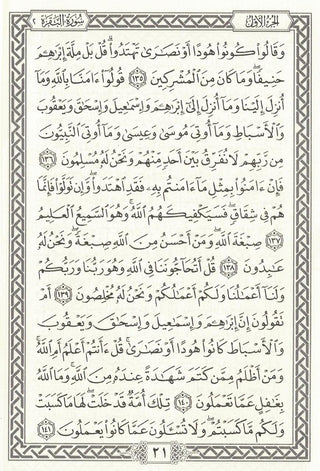 الجزء الأول سورة البقرة ٢
وَقَالُوا۟ كُونُوا۟ هُودًا أَوْ نَصَـٰرَىٰ تَهْتَدُوا۟ ۗ قُلْ بَلْ مِلَّةَ إِبْرَٰهِـۧمَ
حَنِيفًا ۖ وَمَا كَانَ مِنَ ٱلْمُشْرِكِينَ ١٣٥ قُولُوٓا۟ ءَامَنَّا بِٱللَّهِ وَمَآ
أُنزِلَ إِلَيْنَا وَمَآ أُنزِلَ إِلَىٰٓ إِبْرَٰهِـۧمَ وَإِسْمَـٰعِيلَ وَإِسْحَـٰقَ وَيَعْقُوبَ
وَٱلْأَسْبَاطِ وَمَآ أُوتِىَ مُوسَىٰ وَعِيسَىٰ وَمَآ أُوتِىَ ٱلنَّبِيُّونَ
مِن رَّبِّهِمْ لَا نُفَرِّقُ بَيْنَ أَحَدٍ مِّنْهُمْ وَنَحْنُ لَهُۥ مُسْلِمُونَ ١٣٦
فَإِنْ ءَامَنُوا۟ بِمِثْلِ مَآ ءَامَنتُم بِهِۦ فَقَدِ ٱهْتَدَوا۟ ۖ وَّإِن تَوَلَّوْا۟ فَإِنَّمَا
هُمْ فِى شِقَاقٍ ۖ فَسَيَكْفِيكَهُمُ ٱللَّهُ ۚ وَهُوَ ٱلسَّمِيعُ ٱلْعَلِيمُ
١٣٧ صِبْغَةَ ٱللَّهِ ۖ وَمَنْ أَحْسَنُ مِنَ ٱللَّهِ صِبْغَةً ۖ وَنَحْنُ لَهُۥ
عَـٰبِدُونَ ١٣٨ قُلْ أَتُحَآجُّونَنَا فِى ٱللَّهِ وَهُوَ رَبُّنَا وَرَبُّكُمْ
وَلَنَآ أَعْمَـٰلُنَا وَلَكُمْ أَعْمَـٰلُكُمْ وَنَحْنُ لَهُۥ مُخْلِصُونَ ١٣٩ أَمْ
تَقُولُونَ إِنَّ إِبْرَٰهِـۧمَ وَإِسْمَـٰعِيلَ وَإِسْحَـٰقَ وَيَعْقُوبَ
وَٱلْأَسْبَاطَ كَانُوا۟ هُودًا أَوْ نَصَـٰرَىٰ ۗ قُلْ ءَأَنتُمْ أَعْلَمُ أَمِ ٱللَّهُ ۗ
وَمَنْ أَظْلَمُ مِمَّن كَتَمَ شَهَـٰدَةً عِندَهُۥ مِنَ ٱللَّهِ ۗ وَمَا ٱللَّهُ
بِغَـٰفِلٍ عَمَّا تَعْمَلُونَ ١٤٠ تِلْكَ أُمَّةٌ قَدْ خَلَتْ ۖ لَهَا مَا كَسَبَتْ
وَلَكُم مَّا كَسَبْتُمْ ۖ وَلَا تُسْـَٔلُونَ عَمَّا كَانُوا۟ يَعْمَلُونَ ١٤١
٢١